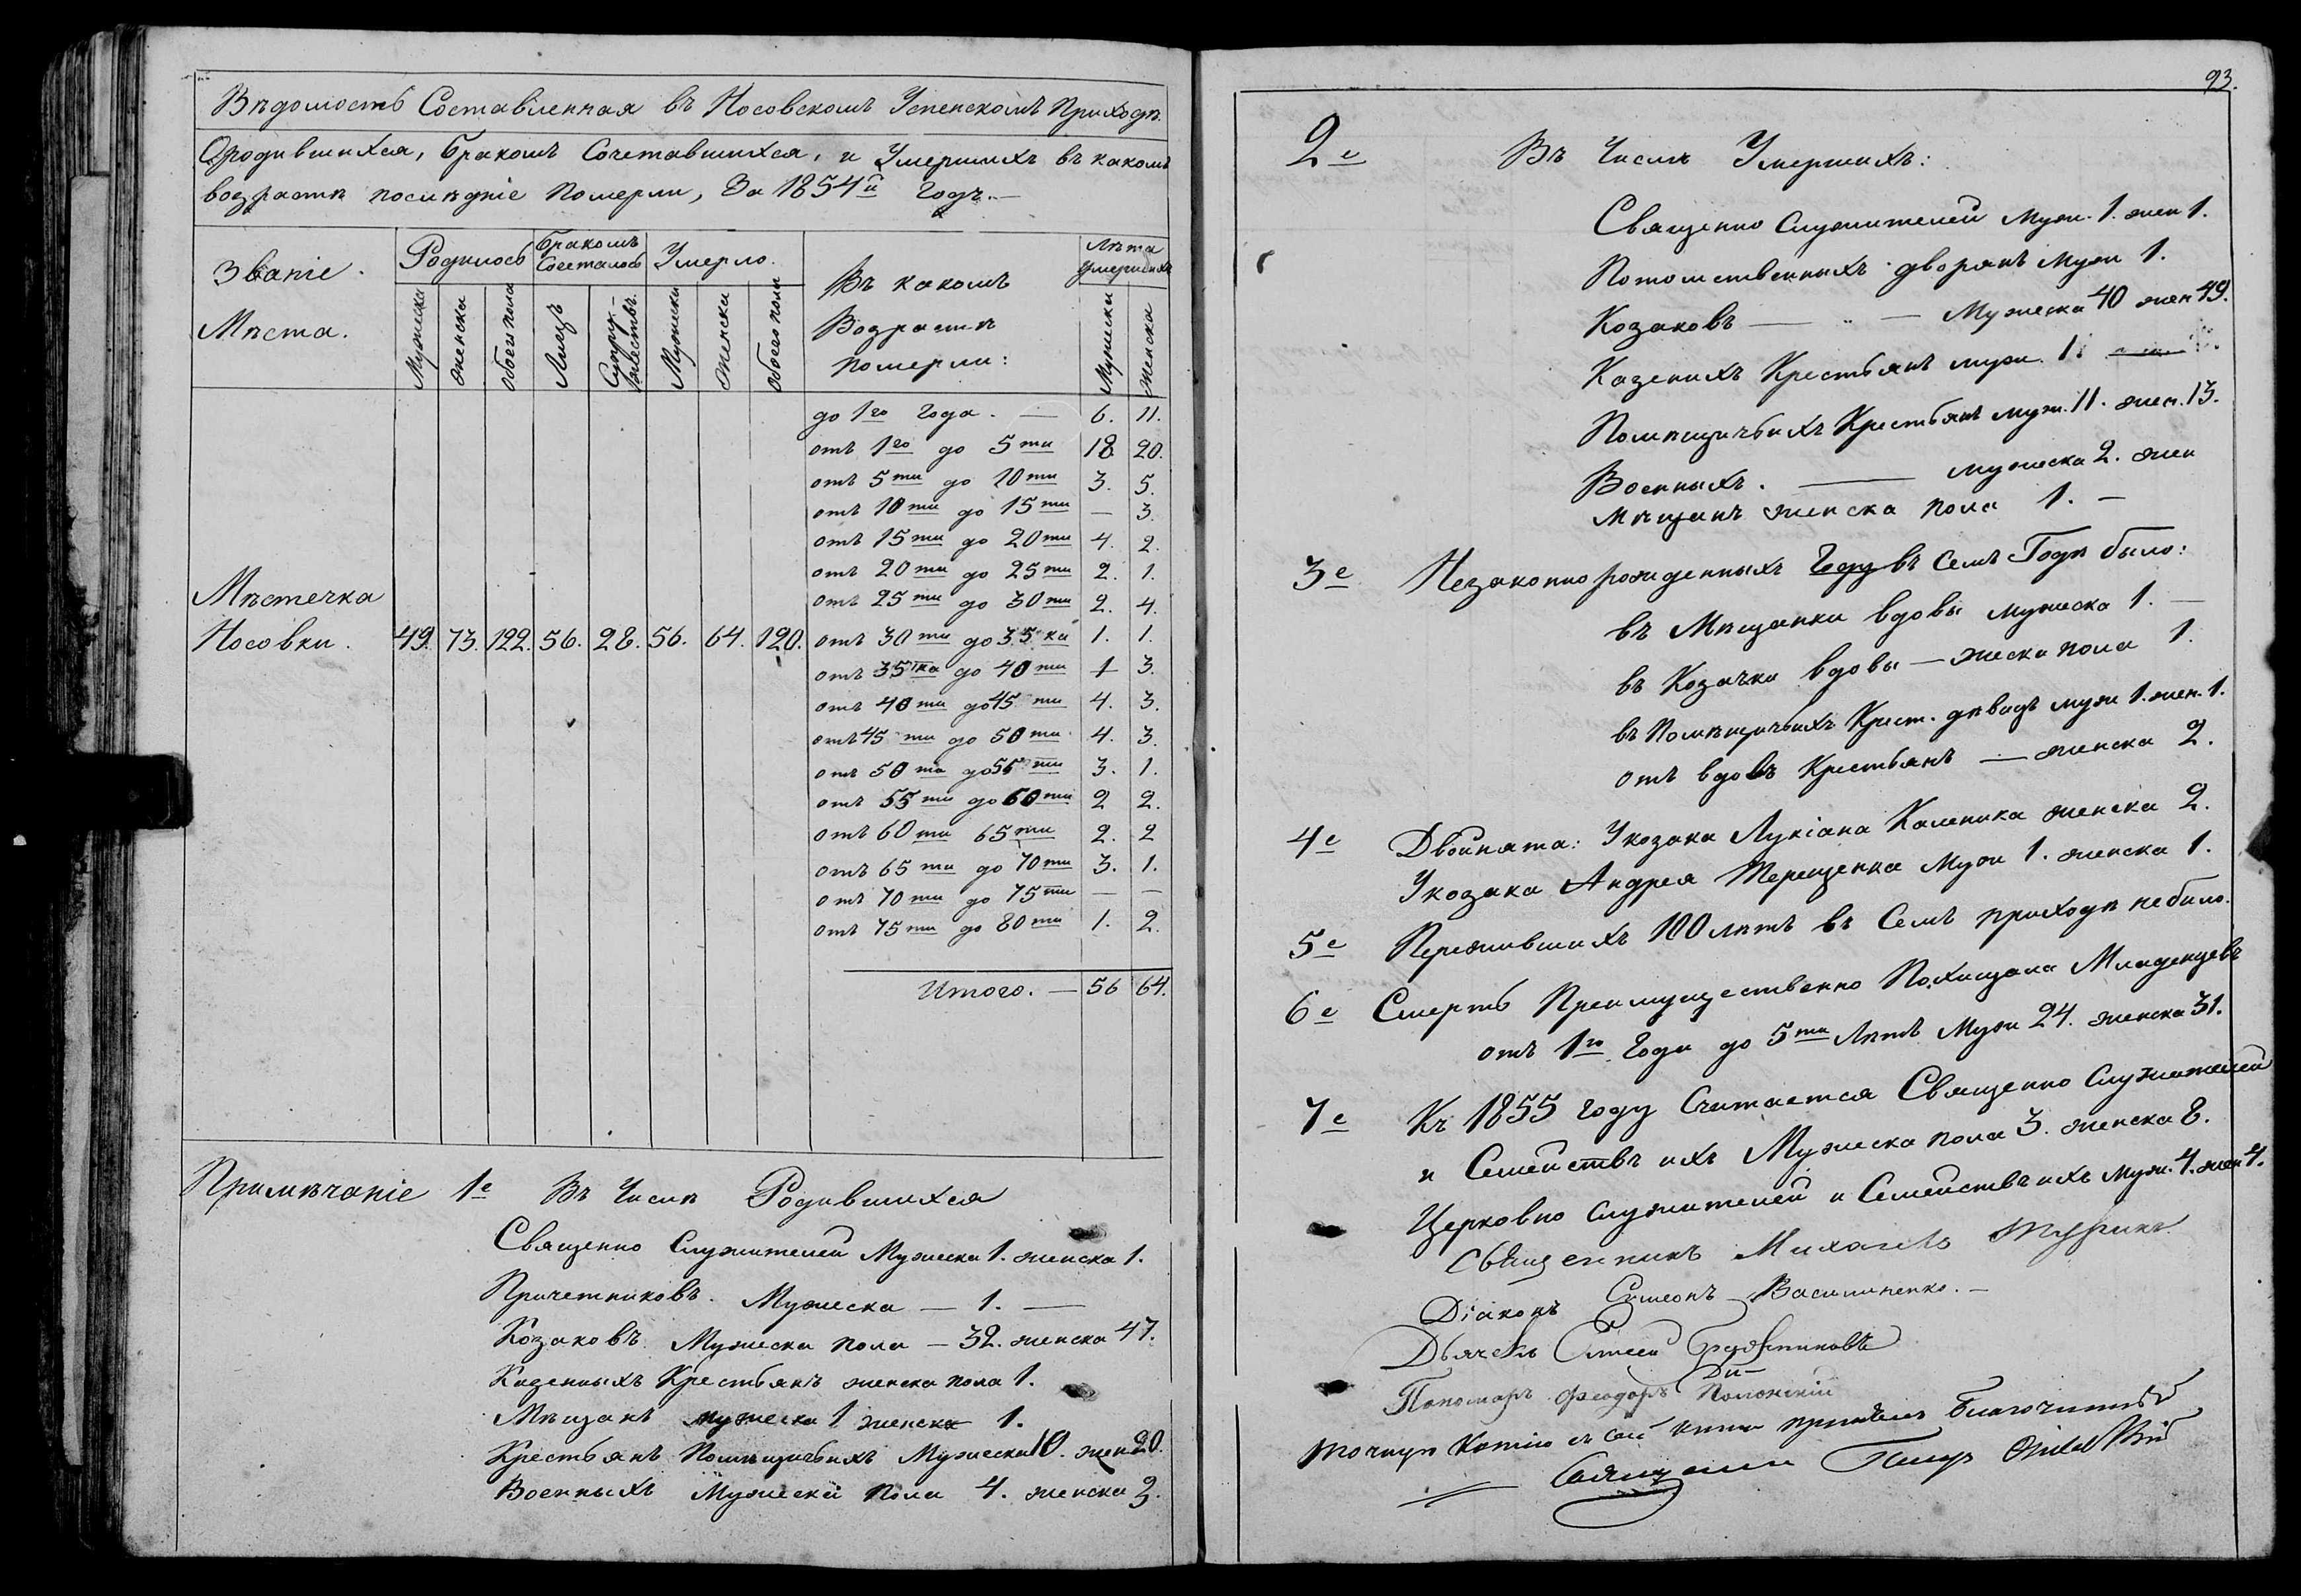 Вѣдомость Составленная въ Носовскомъ Успенскомъ Приходѣ.
О родившихся, бракомъ Сочетавшихся, и Умершихъ въ какомъ
возрастѣ послѣдніе померли, За 1854й годъ.—
Званіе
Мѣста.
Родилось
Мужеска
женска
обоего пола
бракомъ Сочеталось
Лицъ
Супружествъ.
Умерло.
Мужеска
женска
обоего пола
Въ какомъ
Возрастѣ
померли:
Лѣта
умершихъ
Мужеска
женска
до 1го года. — 6. 11.
отъ 1го до 5ти 18 20.
отъ 5ти до 10ти 3. 5.
отъ 10ти до 15ти — 3.
отъ 15ти до 20ти 4. 2.
отъ 20ти до 25ти 2. 1.
отъ 25ти до 30ти 2. 4.
Мѣстечка
Носовки. 49. 73. 122. 56. 28. 56. 64. 120. отъ 30ти до 35ка 1. 1.
отъ 35ка до 40ти 1 3.
отъ 40ти до 45ти 4. 3.
отъ 45ти до 50ти 4. 3.
отъ 50та до 55ти 3. 1.
отъ 55ти до 60ти 2 2.
отъ 60ти 65ти 2. 2
отъ 65ти до 70ти 3. 1.
отъ 70ти до 75ти — —
отъ 75ти до 80ти 1. 2.
Итого. — 56 64.
Примѣчаніе 1е Въ Числѣ Родившихся
Священно Служителей Мужеска 1. женска 1.
Причетниковъ. Мужеска — 1. —
Козаковъ. Мужеска пола — 32. женска 47.
Казенныхъ Крестьянъ женска пола 1.
Мѣщанъ мужеска 1 женска 1.
Крестьянъ Помѣщичьихъ Мужеска 10. жен 20.
Военныхъ Мужеска пола 4. женска 3.
93.
2е Въ Числѣ Умершихъ:
Священно Служителей Муж. 1. жен 1.
Потомственныхъ дворянъ Муж 1.
Козаковъ — „ — Мужеска 40 жен 49.
Казенихъ Крестьянъ муж. 1.
Помѣщичьихъ Крестьянъ муж. 11. жен. 13.
Военныхъ. — мужеска 2. жен
Мѣщанъ женска пола 1. —
3е Незаконно рожденныхъ Году въ семъ Годѣ было:
въ Мѣщанки вдовы мужеска 1. —
въ Козачки вдовы — жеска пола 1.
въ Помѣщичьихъ Крест. дѣвицъ муж 1. жен. 1.
отъ вдовъ Крестьянъ — женска 2.
4е Двойнята: У козака Лукіана Каленика женска 2.
У козака Андрея Терещенка Муж 1. женска 1.
5е Пережившихъ 100 лѣтъ въ Семъ приходѣ небило.
6е Смерть Преимущественно Похищала Младенцевъ
отъ 1го Года до 5ти Лѣтъ Муж 24. женска 31.
7е Къ 1855 году Считается Священно Служителей
и Семействъ ихъ Мужеска пола 3. женска 8.
Церковно Служителей и Семействъ ихъ Муж. 4. жен 4.
Священникъ Михаилъ
Діаконъ Симеонъ Василиненко. —
Дьячекъ
Пономарь Феодоръ Полонскій
Точную Копію съ сей книги принялъ Благочинный
Священникъ